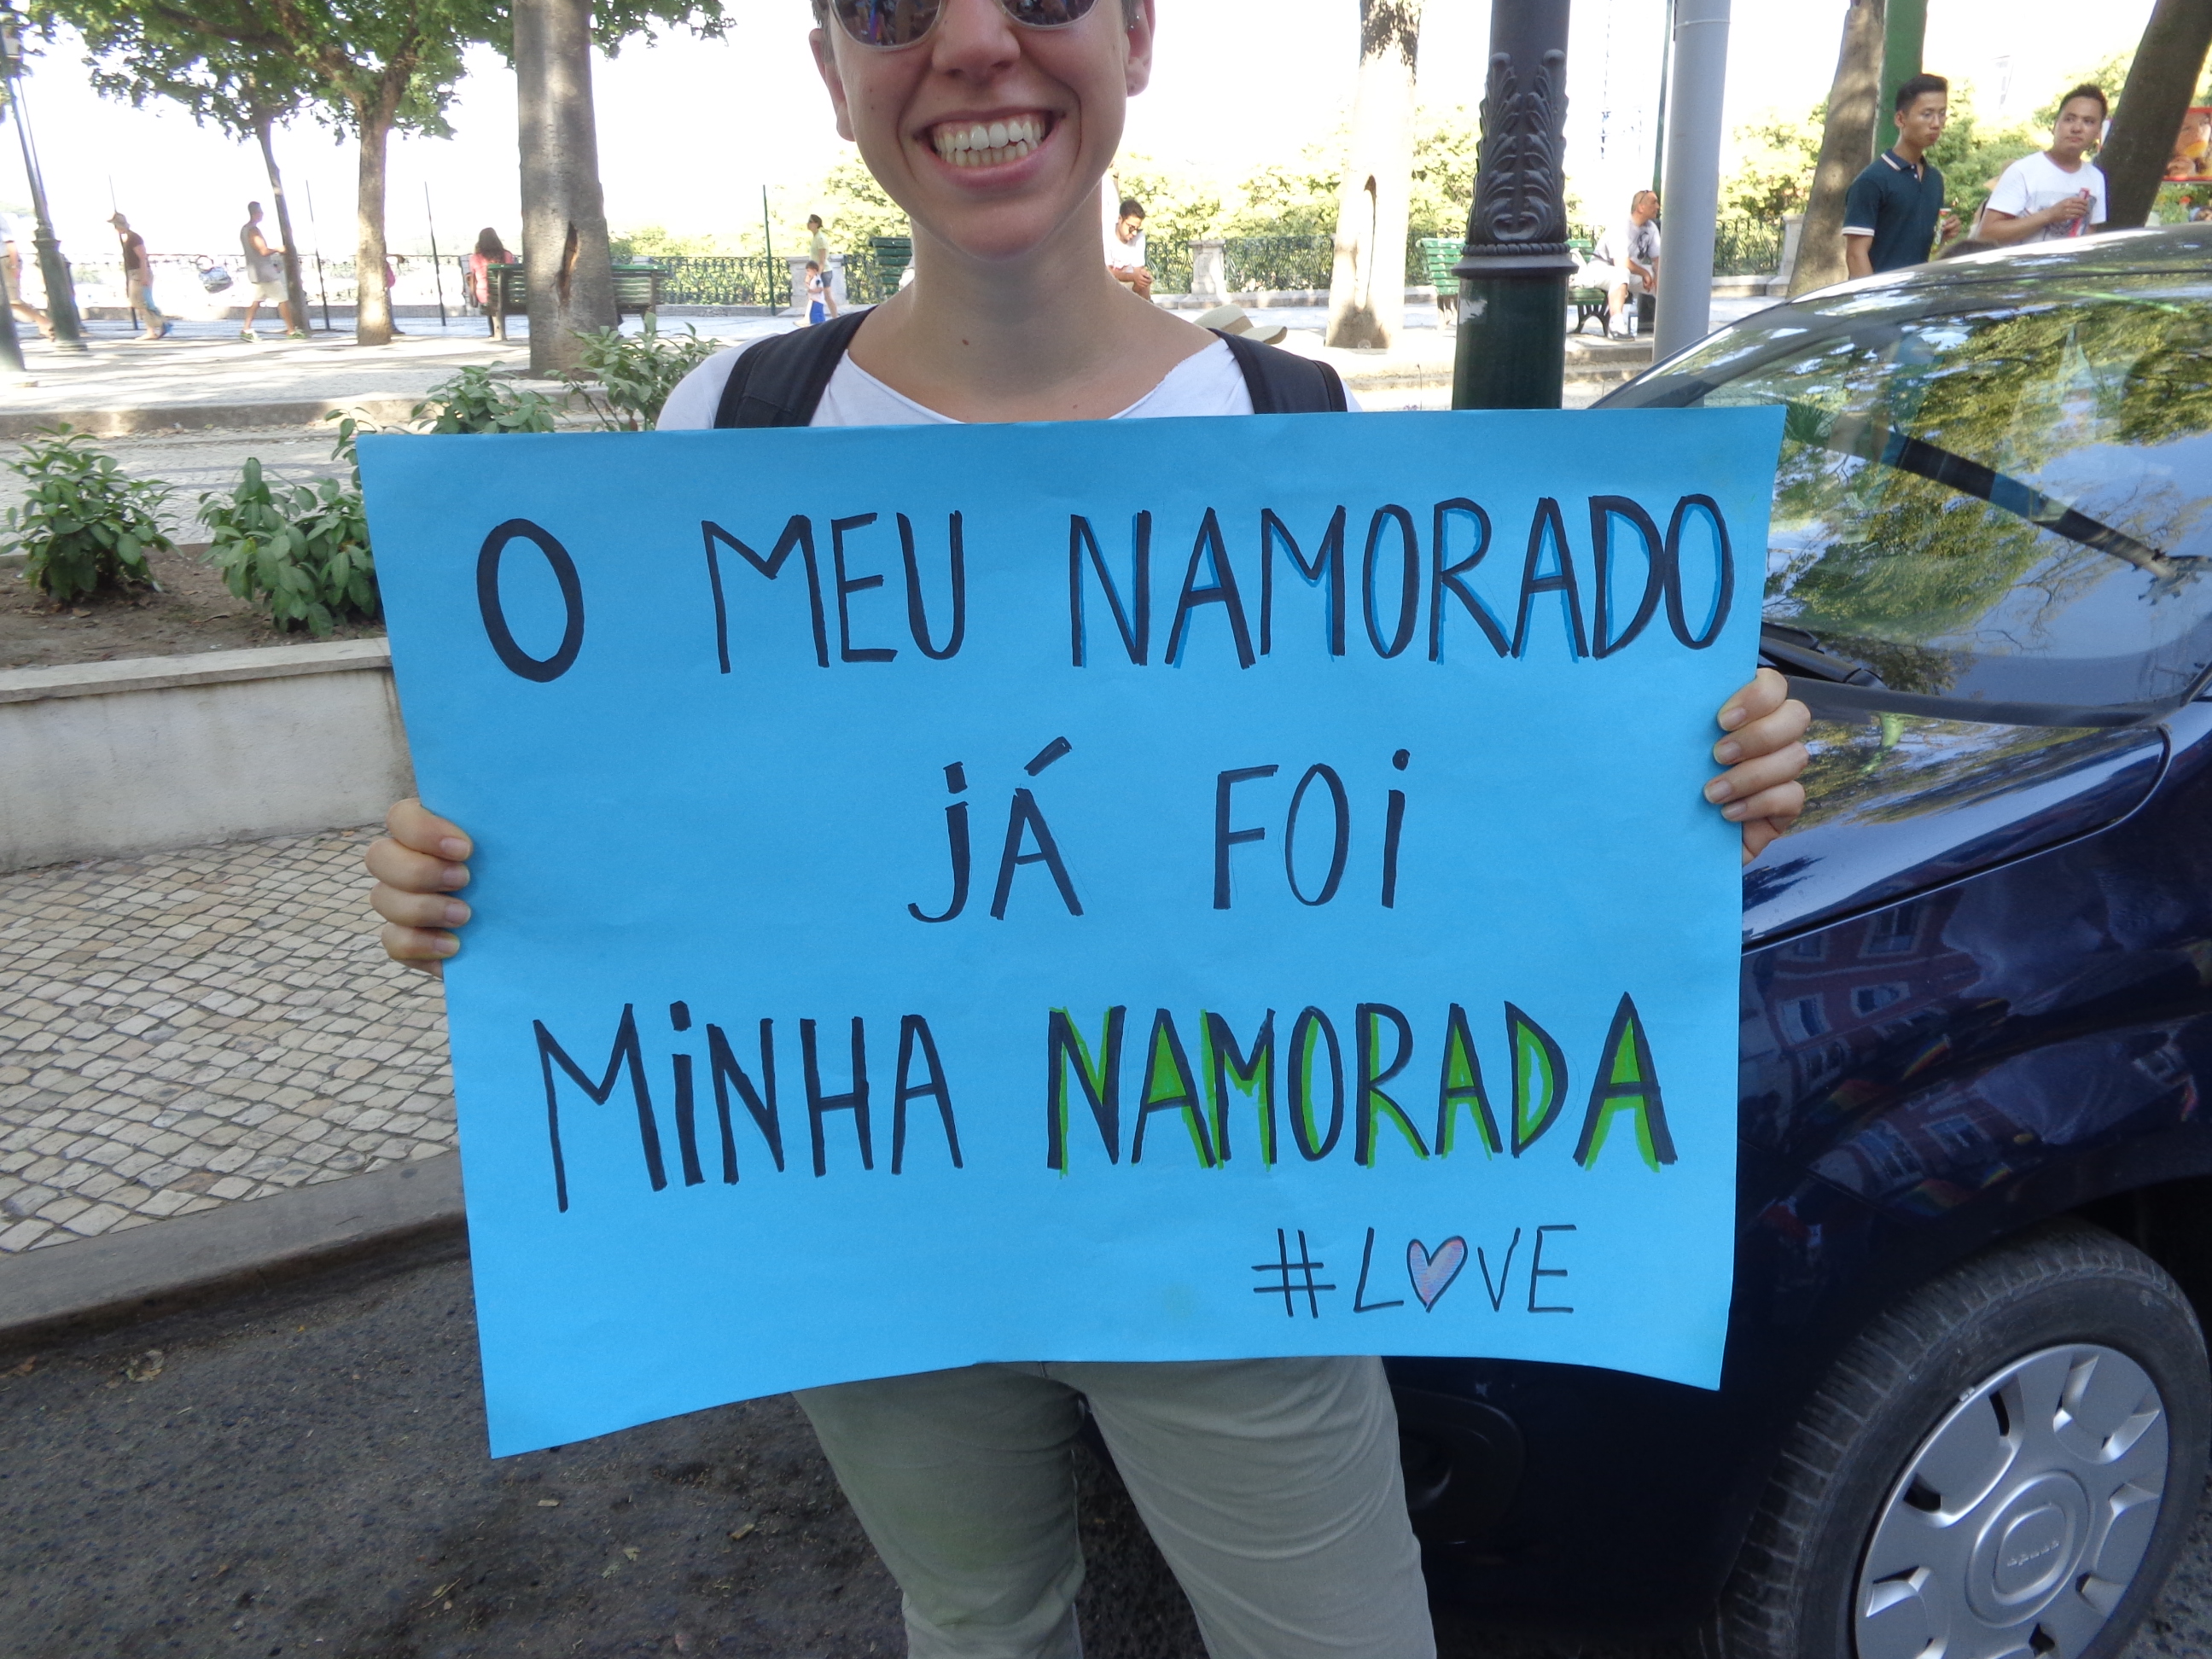 O MEU NAMORADO
JÁ FOI
MINHA NAMORADA
#LOVE